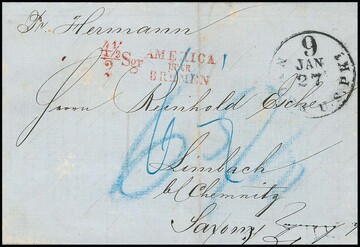 Pr. Hermann
4½
2 Sgr
AMERICA
ÜBER
BREMEN
9
JAN
27
U.S. PKT
Herrn Reinhold Esche
Limbach
b/ Chemnitz
Saxony